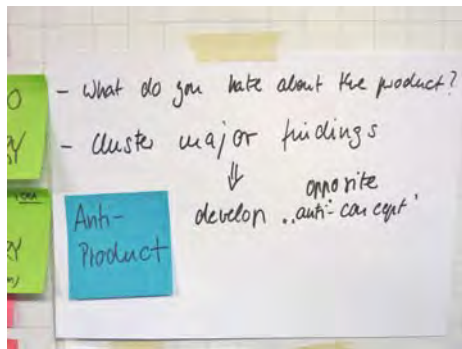 - What do you hate about the product?
- Cluster major findings
⇓
opposite
develop "anti-concept"
Anti-
Product